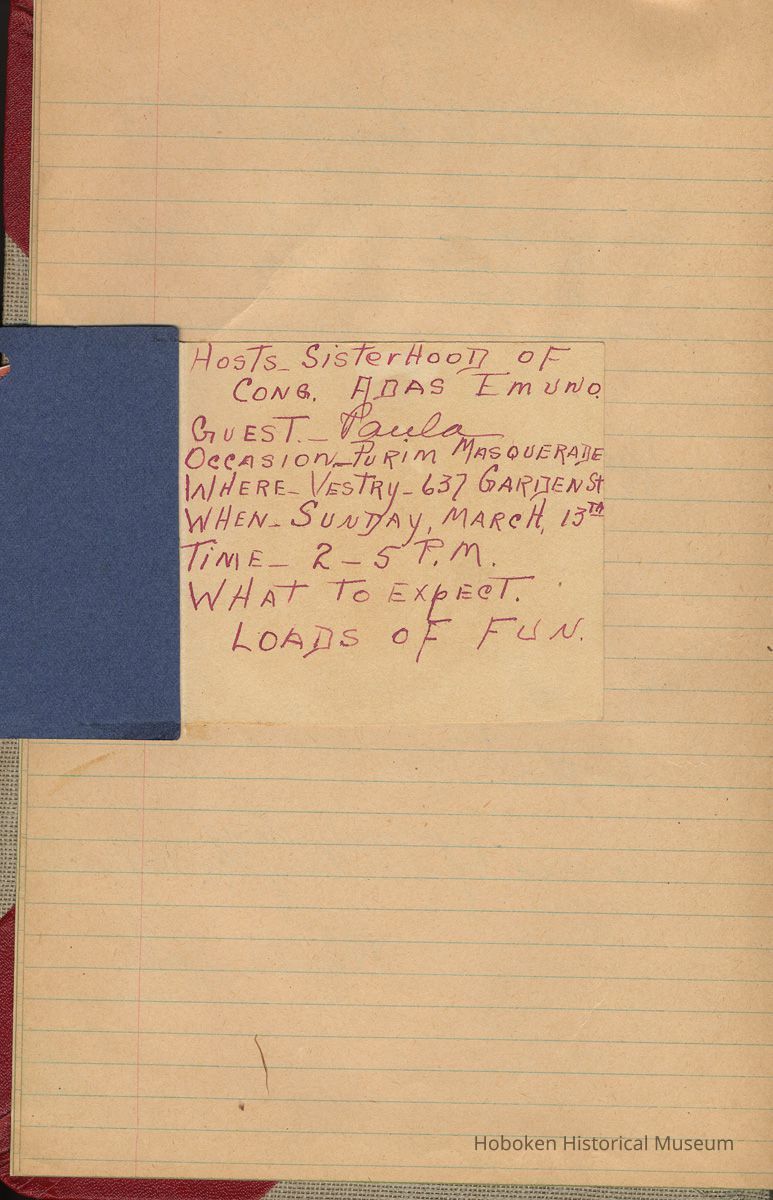 Hosts- Sisterhood of
Cong. Adas Emuno.
Guest.- Paula
Occasion-Purim Masquerade
Where- Vestry- 637 Garden St
When- Sunday, March, 13TH
Time- 2-5 P.M.
What to expect.
Loads of Fun.
Hoboken Historical Museum